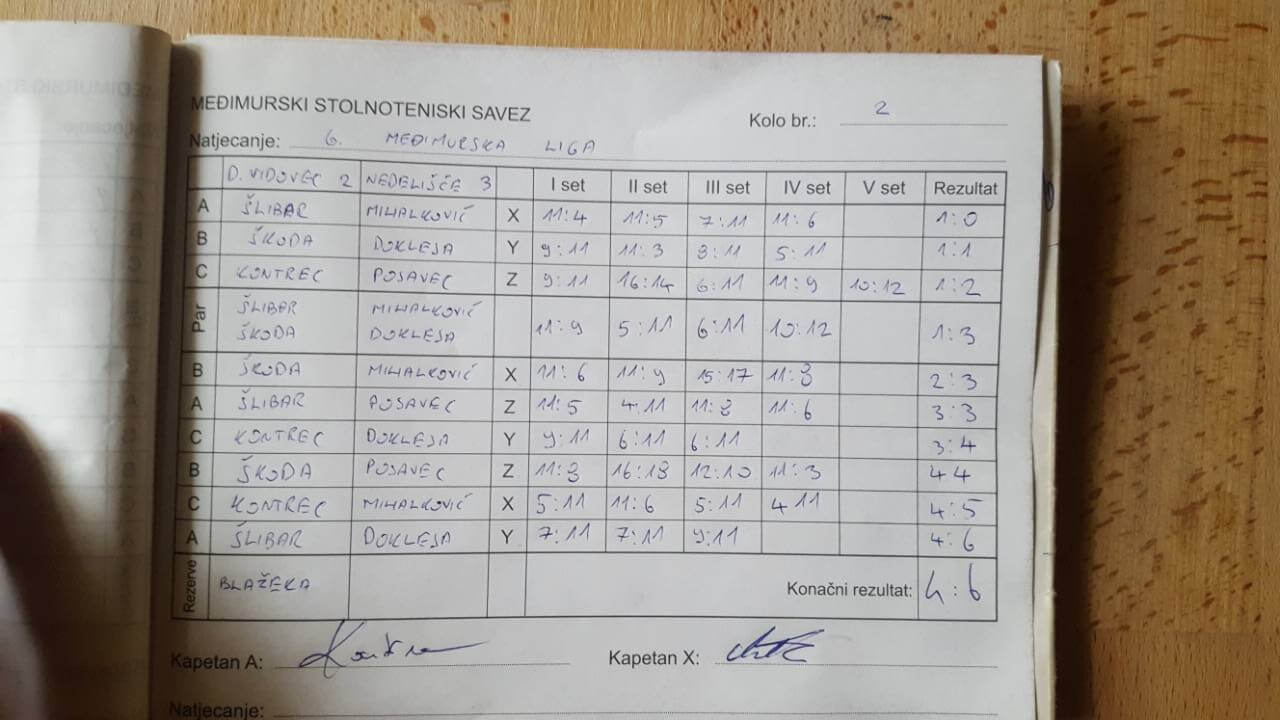 MEĐIMURSKI STOLNOTENISKI SAVEZ
Kolo br.: 2
Natjecanje: 6. MEĐIMURSKA LIGA
D. VIDOVEC 2 NEDELIŠĆE 3 I set II set III set IV set V set Rezultat
A ŠLIBAR MIHALKOVIĆ X 11:4 11:5 7:11 11:6 1:0
B ŠKODA DOKLEJA Y 9:11 11:3 8:11 5:11 1:1
C KONTREC POSAVEC Z 9:11 16:14 6:11 11:9 10:12 1:2
Par ŠLIBAR MIHALKOVIĆ
ŠKODA DOKLEJA 11:9 5:11 6:11 10:12 1:3
B ŠKODA MIHALKOVIĆ X 11:6 11:9 15:17 11:8 2:3
A ŠLIBAR POSAVEC Z 11:5 4:11 11:8 11:6 3:3
C KONTREC DOKLEJA Y 9:11 6:11 6:11 3:4
B ŠKODA POSAVEC Z 11:8 16:18 12:10 11:3 4 4
C KONTREC MIHALKOVIĆ X 5:11 11:6 5:11 4 11 4:5
A ŠLIBAR DOKLEJA Y 7:11 7:11 9:11 4:6
Rezerve BLAŽEKA Konačni rezultat: 4:6
Kapetan A: Kapetan X:
Natjecanje: